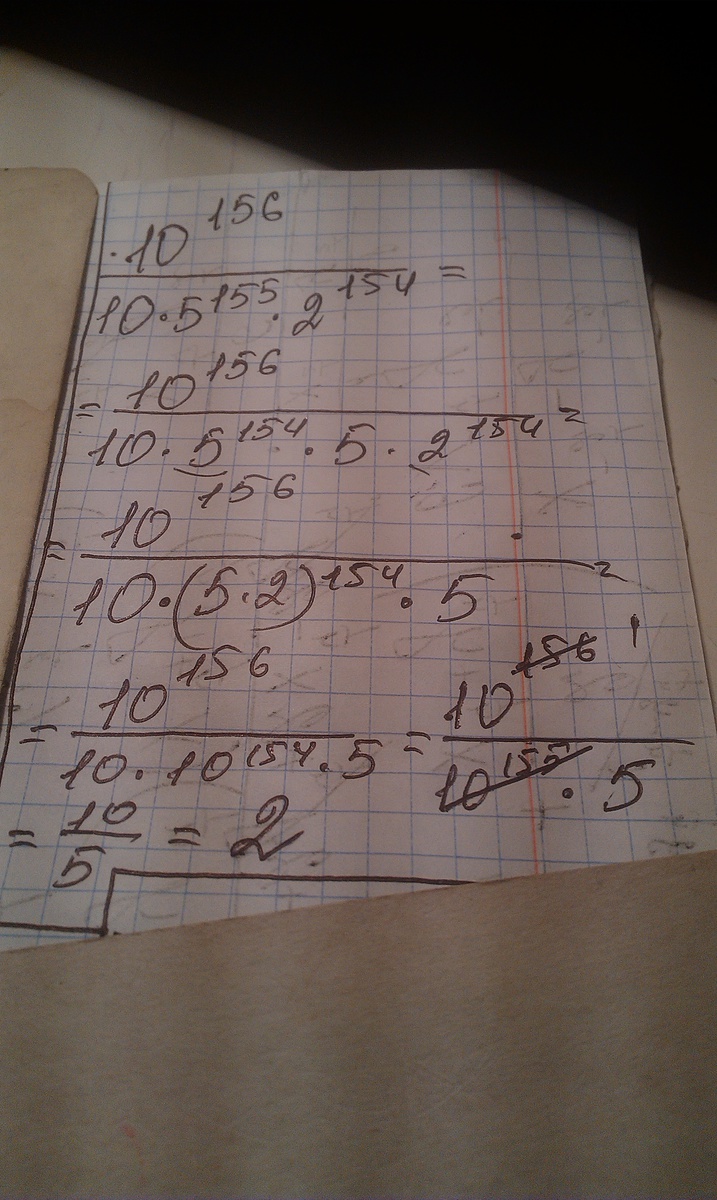 ·10^156
10·5^155·2^154 =
= 10^156
10·5^154·5·2^154 =
= 10^156
10·(5·2)^154·5 =
= 10^156 = 10^156 1
10·10^154·5 10^155·5
= 10 = 2
5